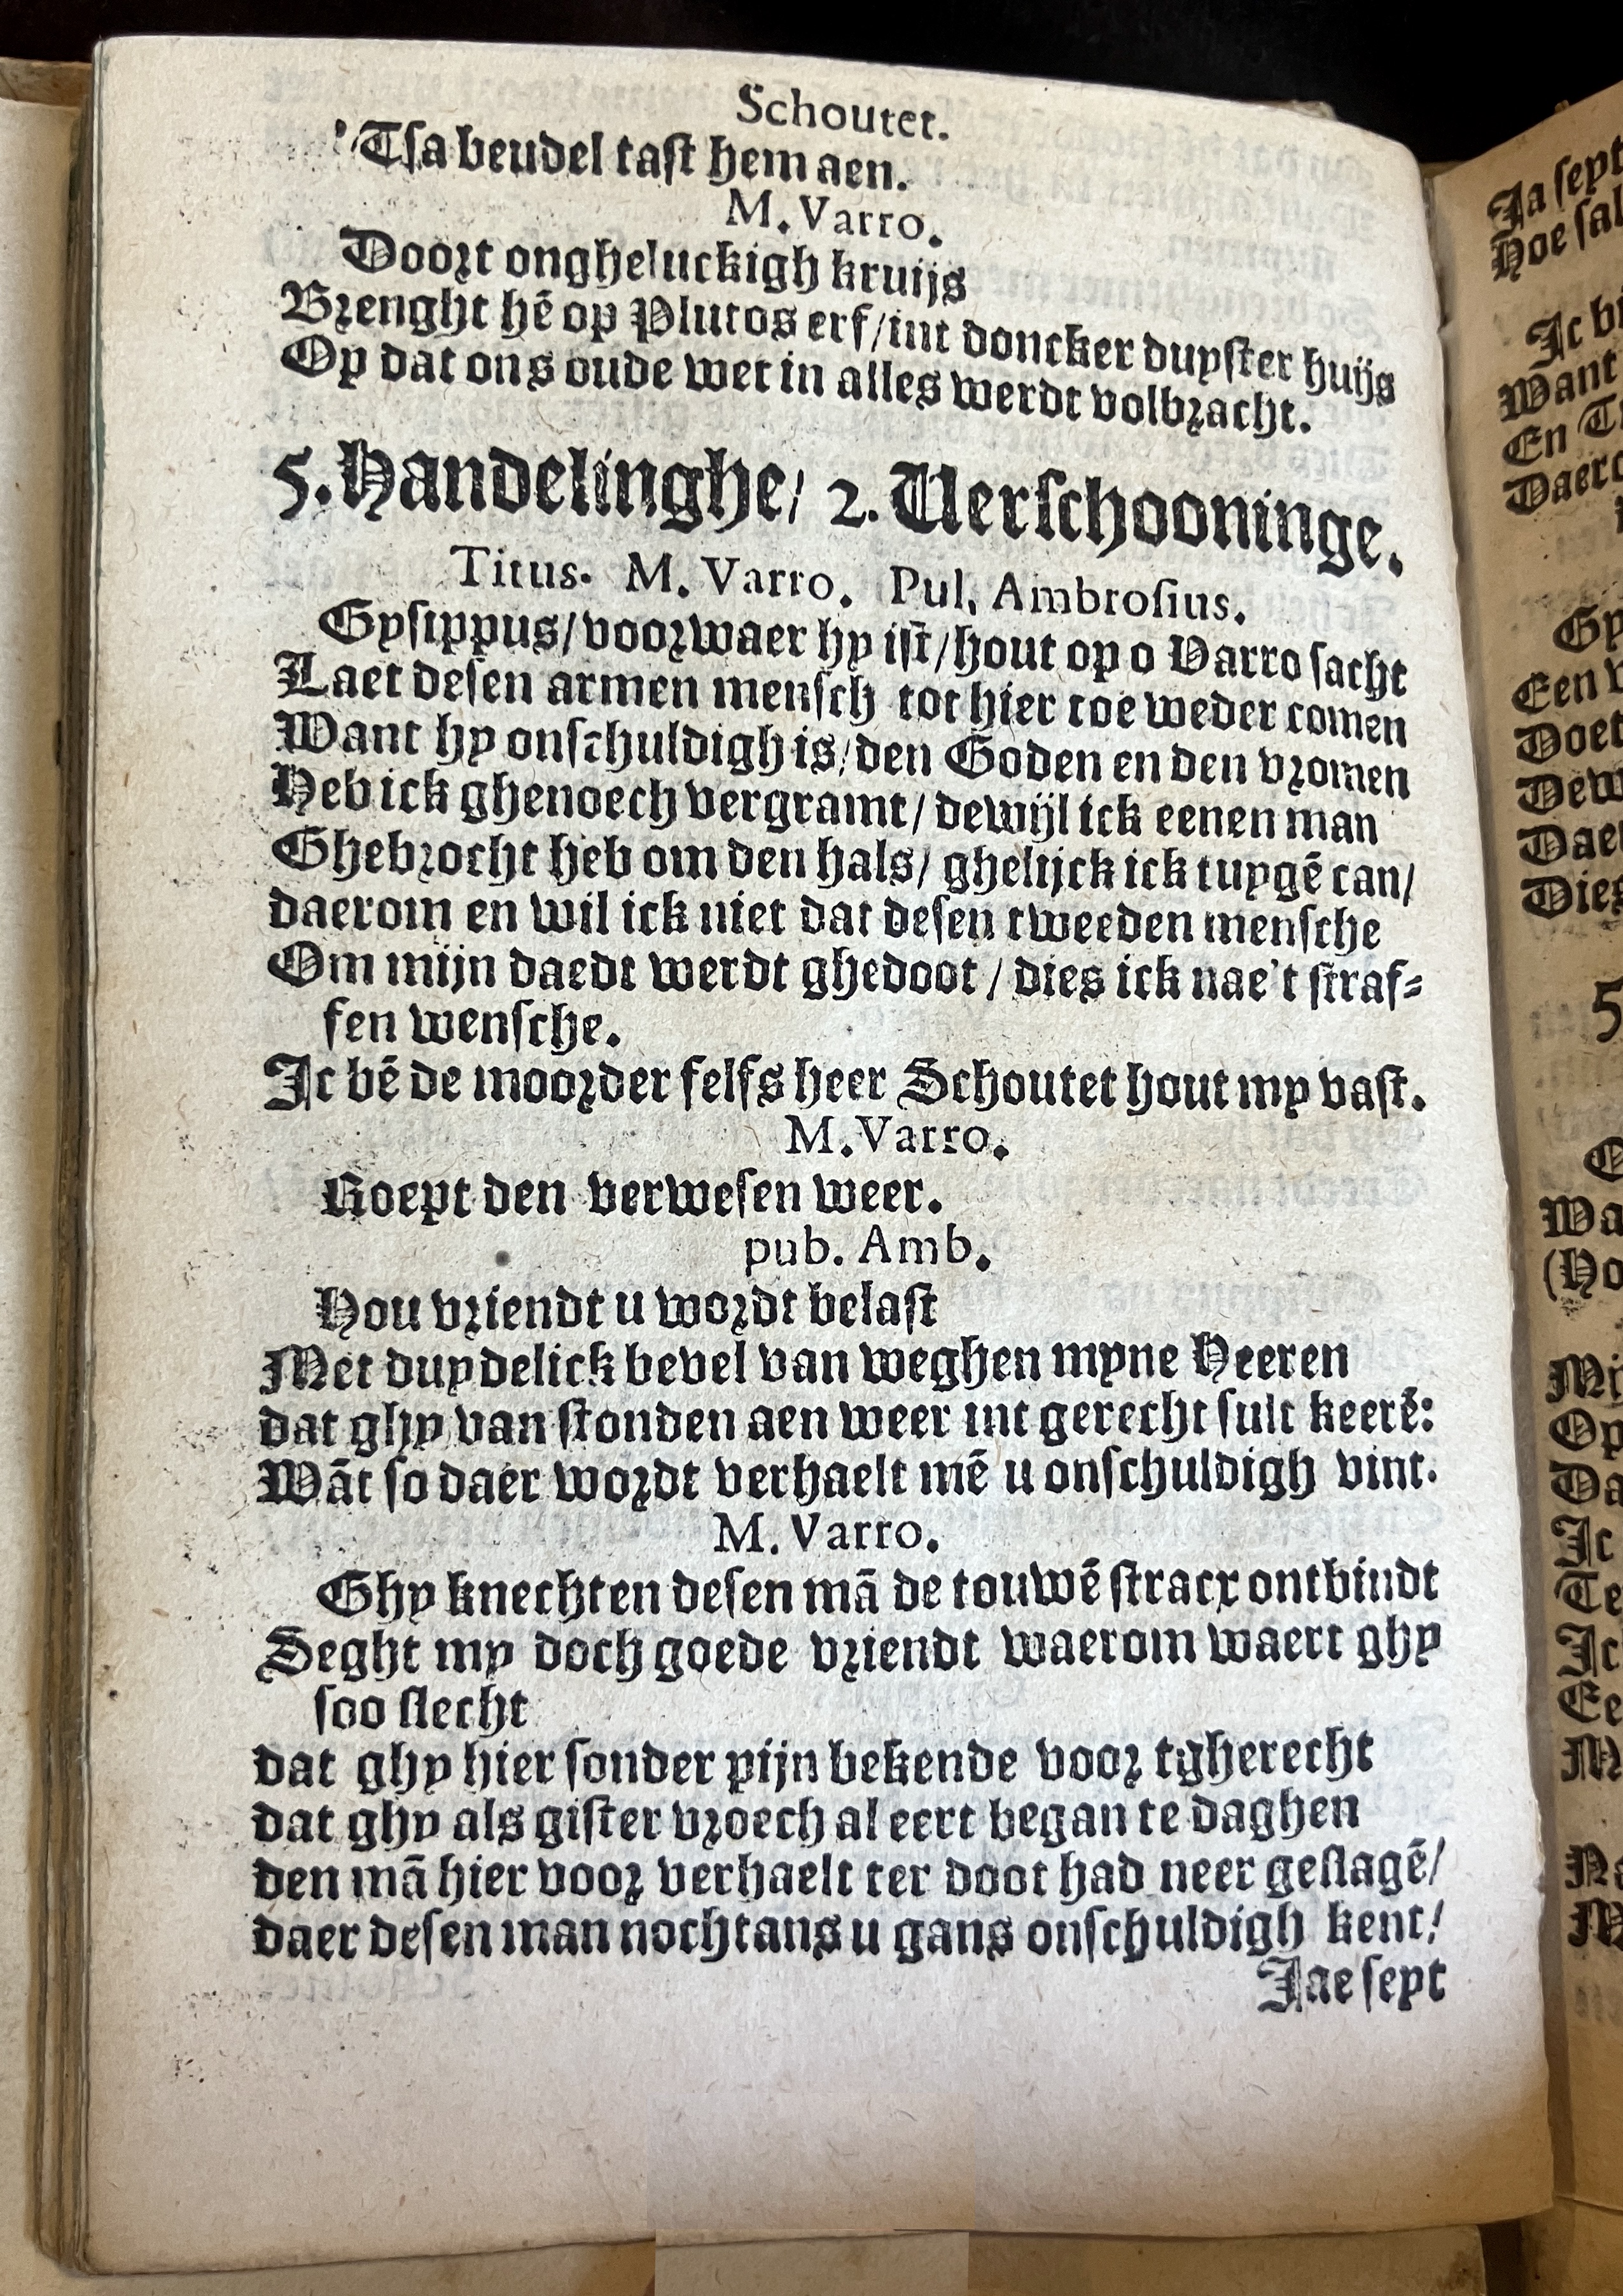 Schoutet.
'Tsa beudel tast hem aen.
M. Varro.
Doort ongheluckigh kruijs
Brenght hē op Plutos erf/int doncker duyster huijs
Op dat ons oude wet in alles werdt volbracht.
5. Handelinghe/ 2. Verschooninge.
Titus. M. Varro. Pul. Ambrosius.
Gysippus/voorwaer hy ist/hout op o Varro sacht
Laet desen armen mensch tot hier toe weder comen
Want hy onschuldigh is/den Goden en den vromen
Heb ick ghenoech vergramt/ dewijl ick eenen man
Ghebrocht heb om den hals/ ghelijck ick tuygē can/
daerom en wil ick niet dat desen tweeden mensche
Om mijn daedt werdt ghedoot / dies ick nae't straf-
fen wensche.
Ic bē de moorder felfs heer Schoutet hout my vast.
M. Varro.
Roept den verwesen weer.
pub. Amb.
Hou vriendt u wordt belast
Met duydelick bevel van weghen myne Heeren
dat ghy van stonden aen weer int gerecht sult keerē:
Wāt so daer wordt verhaelt mē u onschuldigh vint.
M. Varro.
Ghy knechten desen mā de touwē stracx ontbindt
Seght my doch goede vriendt waerom waert ghy
soo slecht
dat ghy hier sonder pijn bekende voor tgherecht
dat ghy als gister vroech al eert began te daghen
den mā hier voor verhaelt ter doot had neer geslagē/
daer desen man nochtans u gans onschuldigh kent!
Jae sept
Ja sept
Hoe sal
Ic b
Want
En T
Daero
Gy
Een v
Doet
Dew
Dae
Dies
5
Wa
(Ho
Mi
Op
Da
Ic
Te
Ic
Ee
M